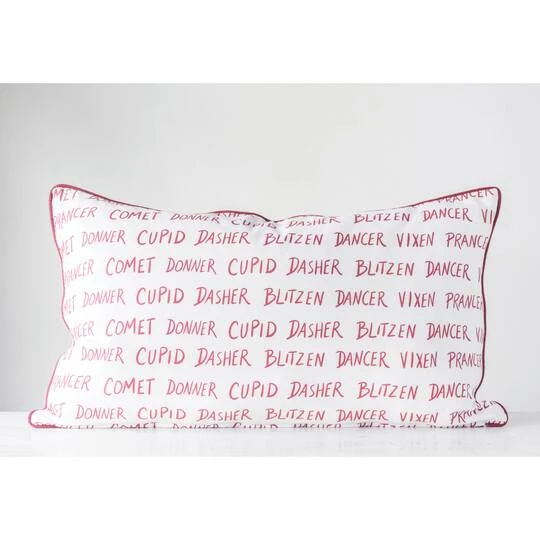 COMET PRANCER
PRANCER COMET DONNER DASHER BLITZEN DANCER VIXEN
DONNER CUPID DASHER BLITZEN DANCER VIXEN PRANCER
PRANCER COMET DONNER CUPID DASHER BLITZEN DANCER
DONNER CUPID DASHER BLITZEN DANCER VIXEN PRANCER
COMET DONNER CUPID DASHER BLITZEN DANCER
DONNER CUPID DASHER BLITZEN DANCER VIXEN PRANCER
PRANCER COMET DONNER CUPID DASHER BLITZEN DANCER
DONNER CUPID DASHER BLITZEN DANCER VIXEN PRANCER
COMET DONNER CUPID DASHER BLITZEN DANCER